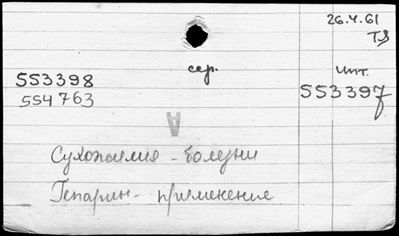 26.4.61
сер. инт.
553398 553397
554763
Сухожилия - болезни
Гепарин - применение